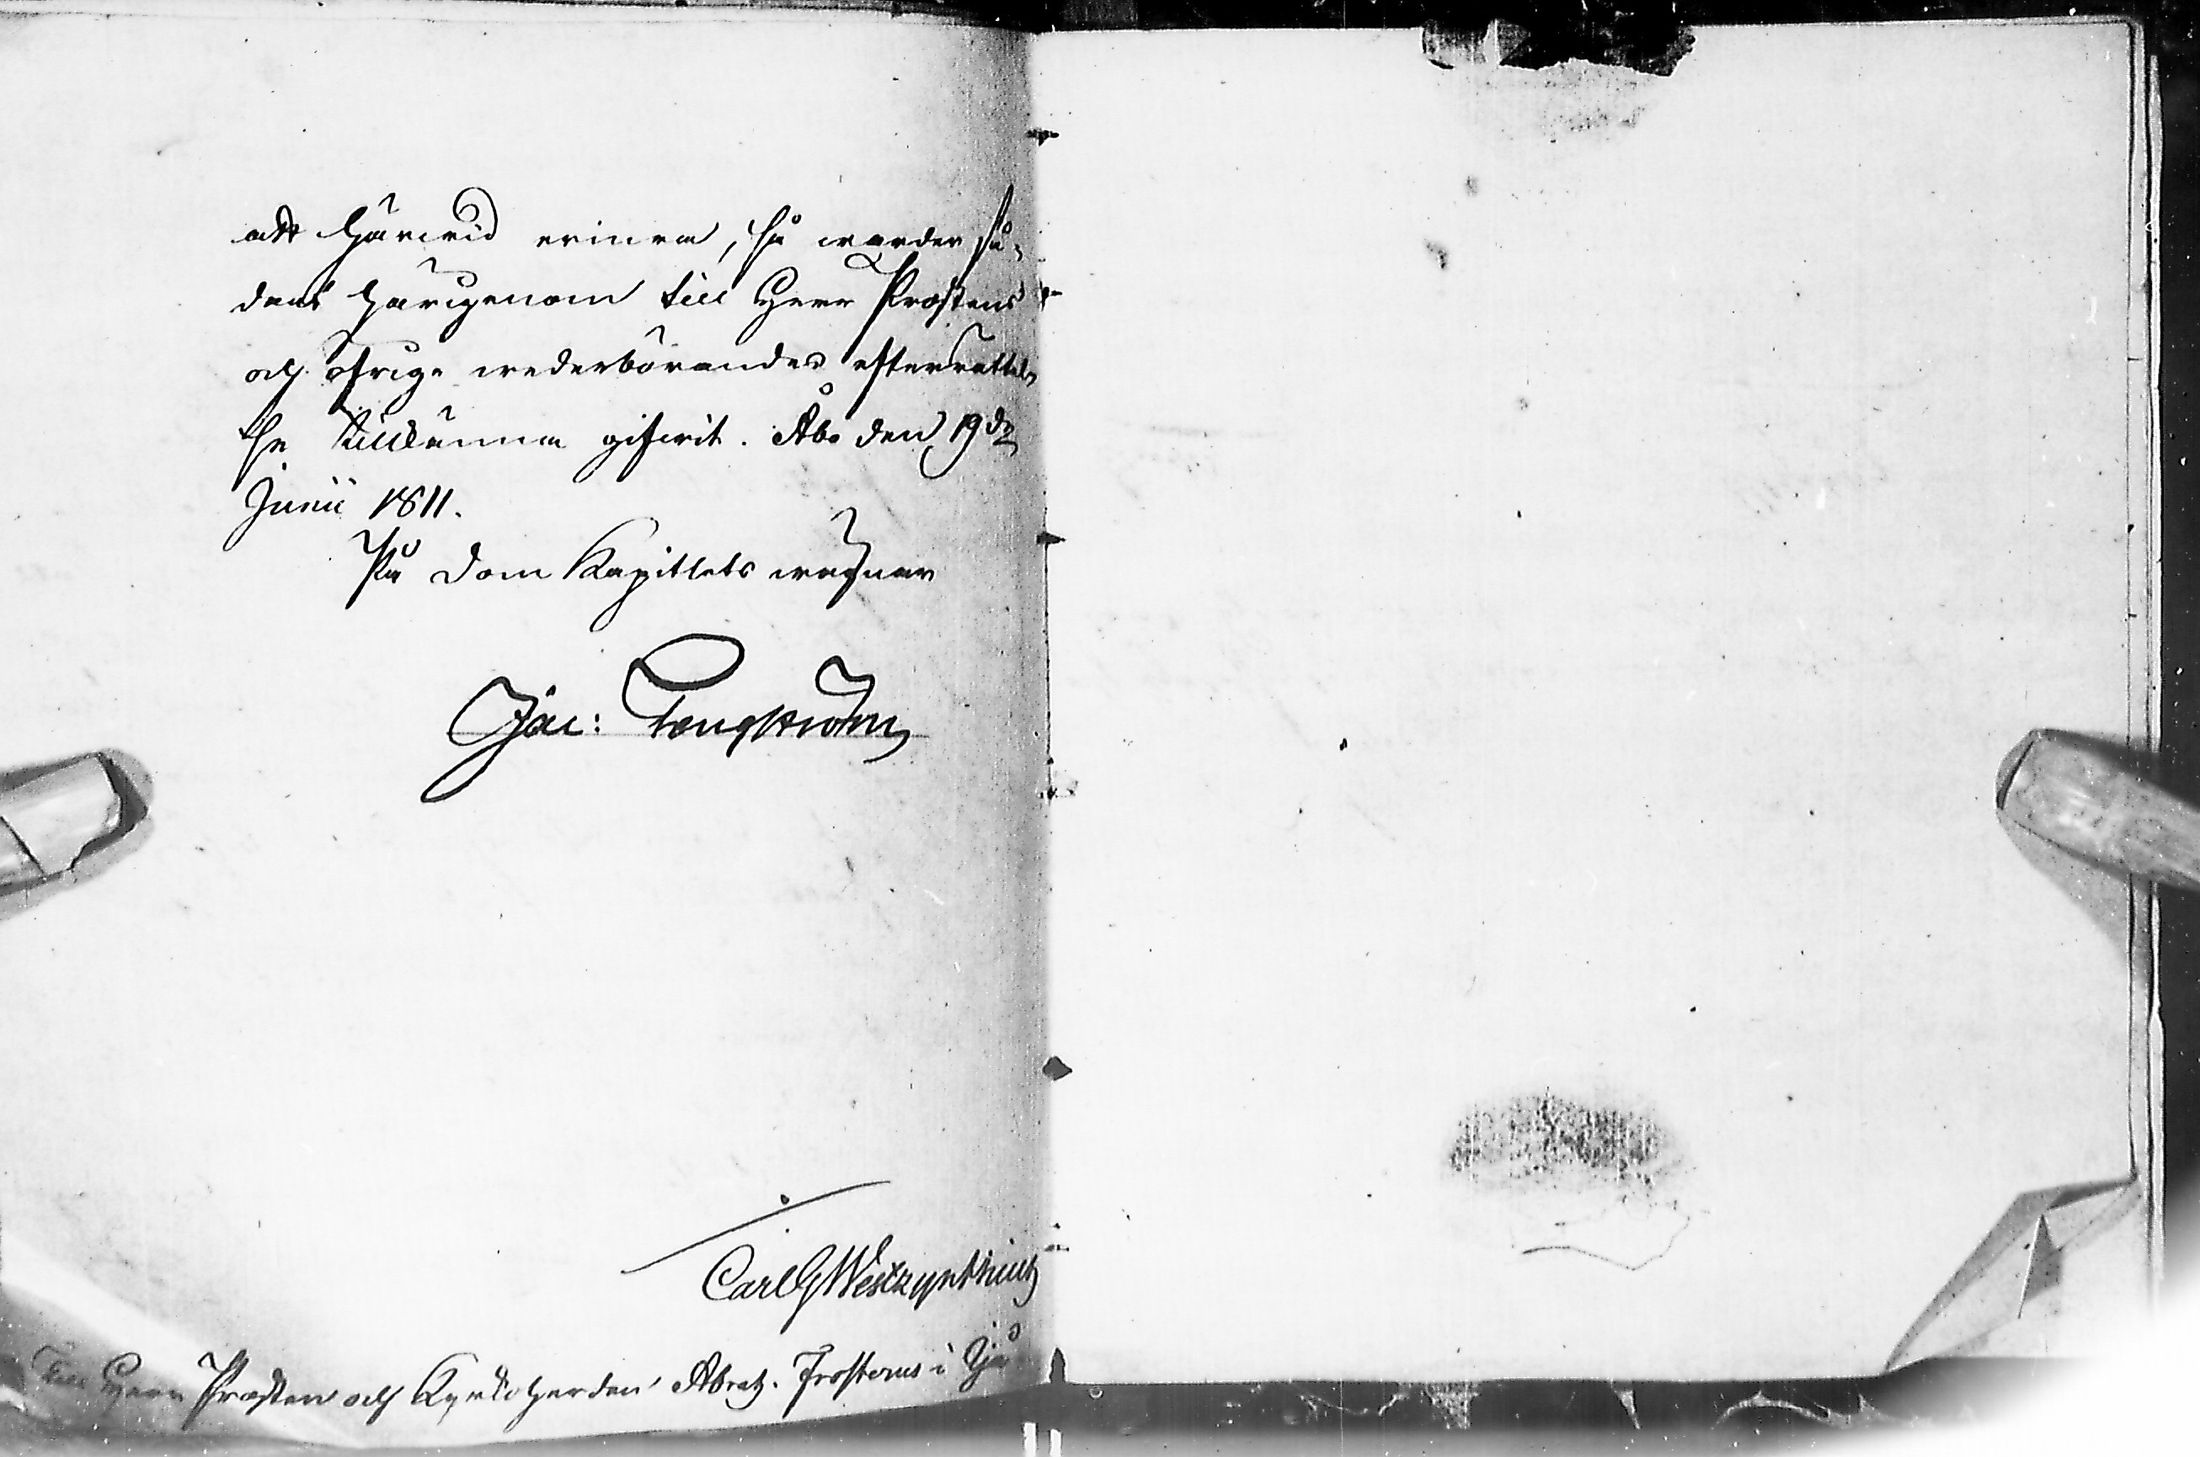 att härwid erinra, så warder så-
dant härigenom till Herr Prostens
och öfrige wederbörandes efterrättel-
se tillkänna gifwit. Åbo den 19de
Junii 1811.
På Dom Kapitlets wägnar
Jac: Tengström
Carl G Westzynthius
Till Herr Prosten och Kyrkoherden Abrah. Frosterus i Ijo